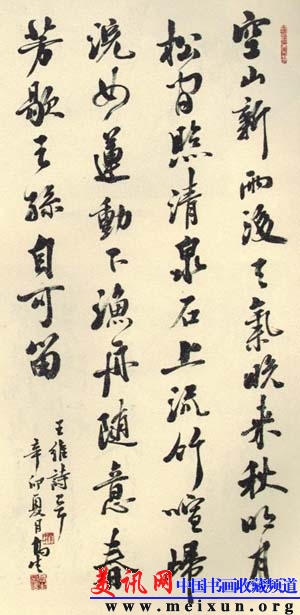 空山新雨後天氣晚来秋明月
松间照清泉石上流竹喧歸
浣女蓮動下漁舟随意春
芳歇王孫自可留
王維詩
辛卯夏
美讯网 中国书画收藏频道
www.meixun.org